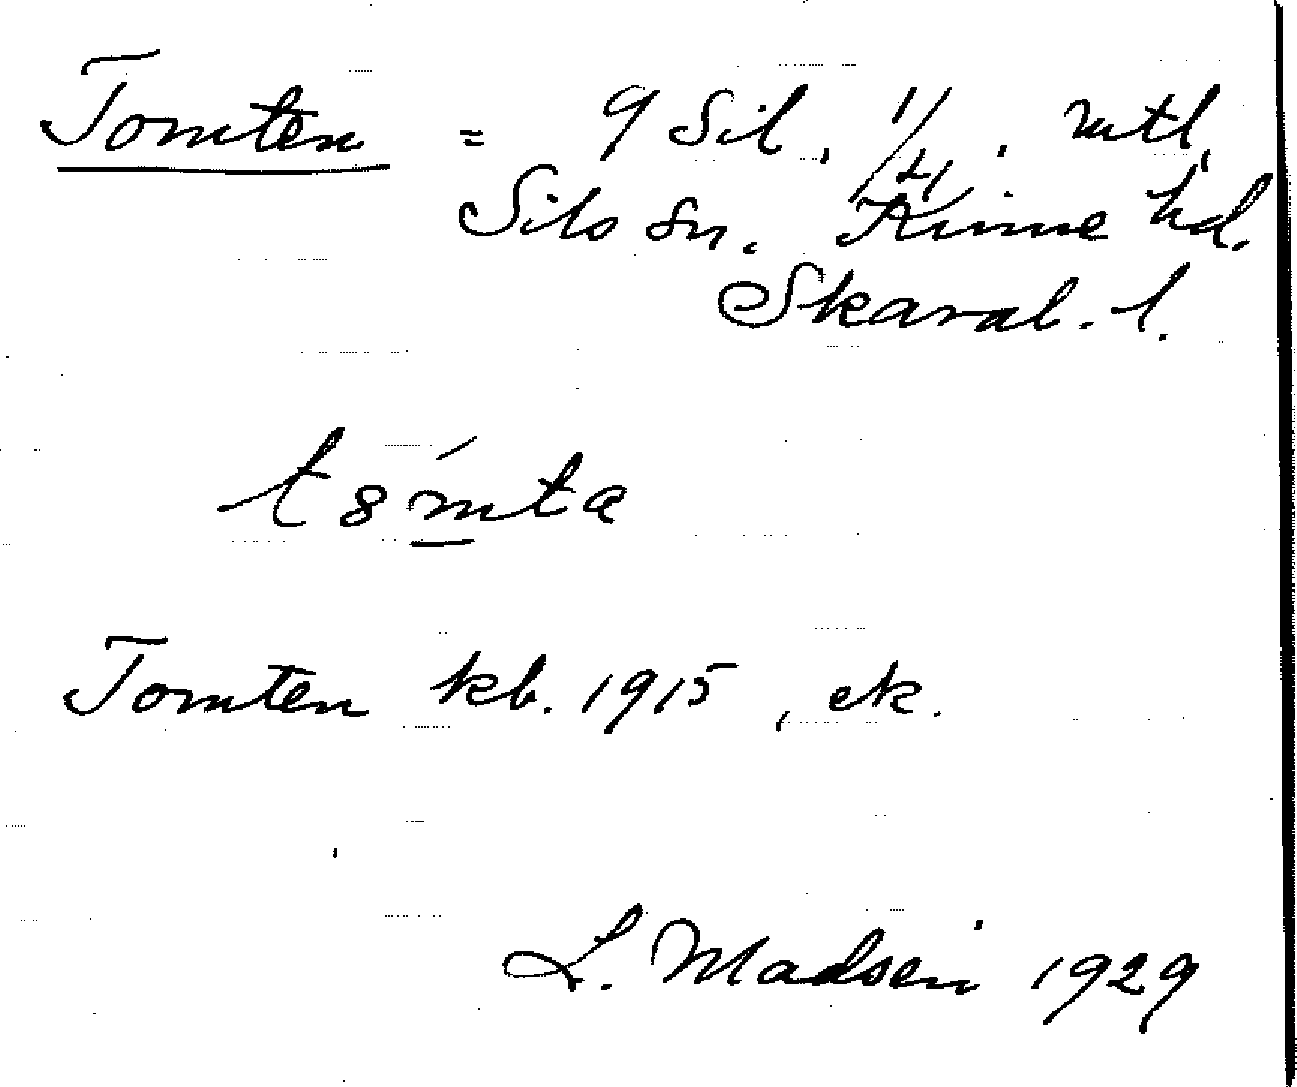 Tomten = 9 Sil, 1/4. mtl,
Sils sn. Kinne hd.
Skarab. l.
t8́mta
Tomten kb. 1915, ek.
L. Madsen 1929